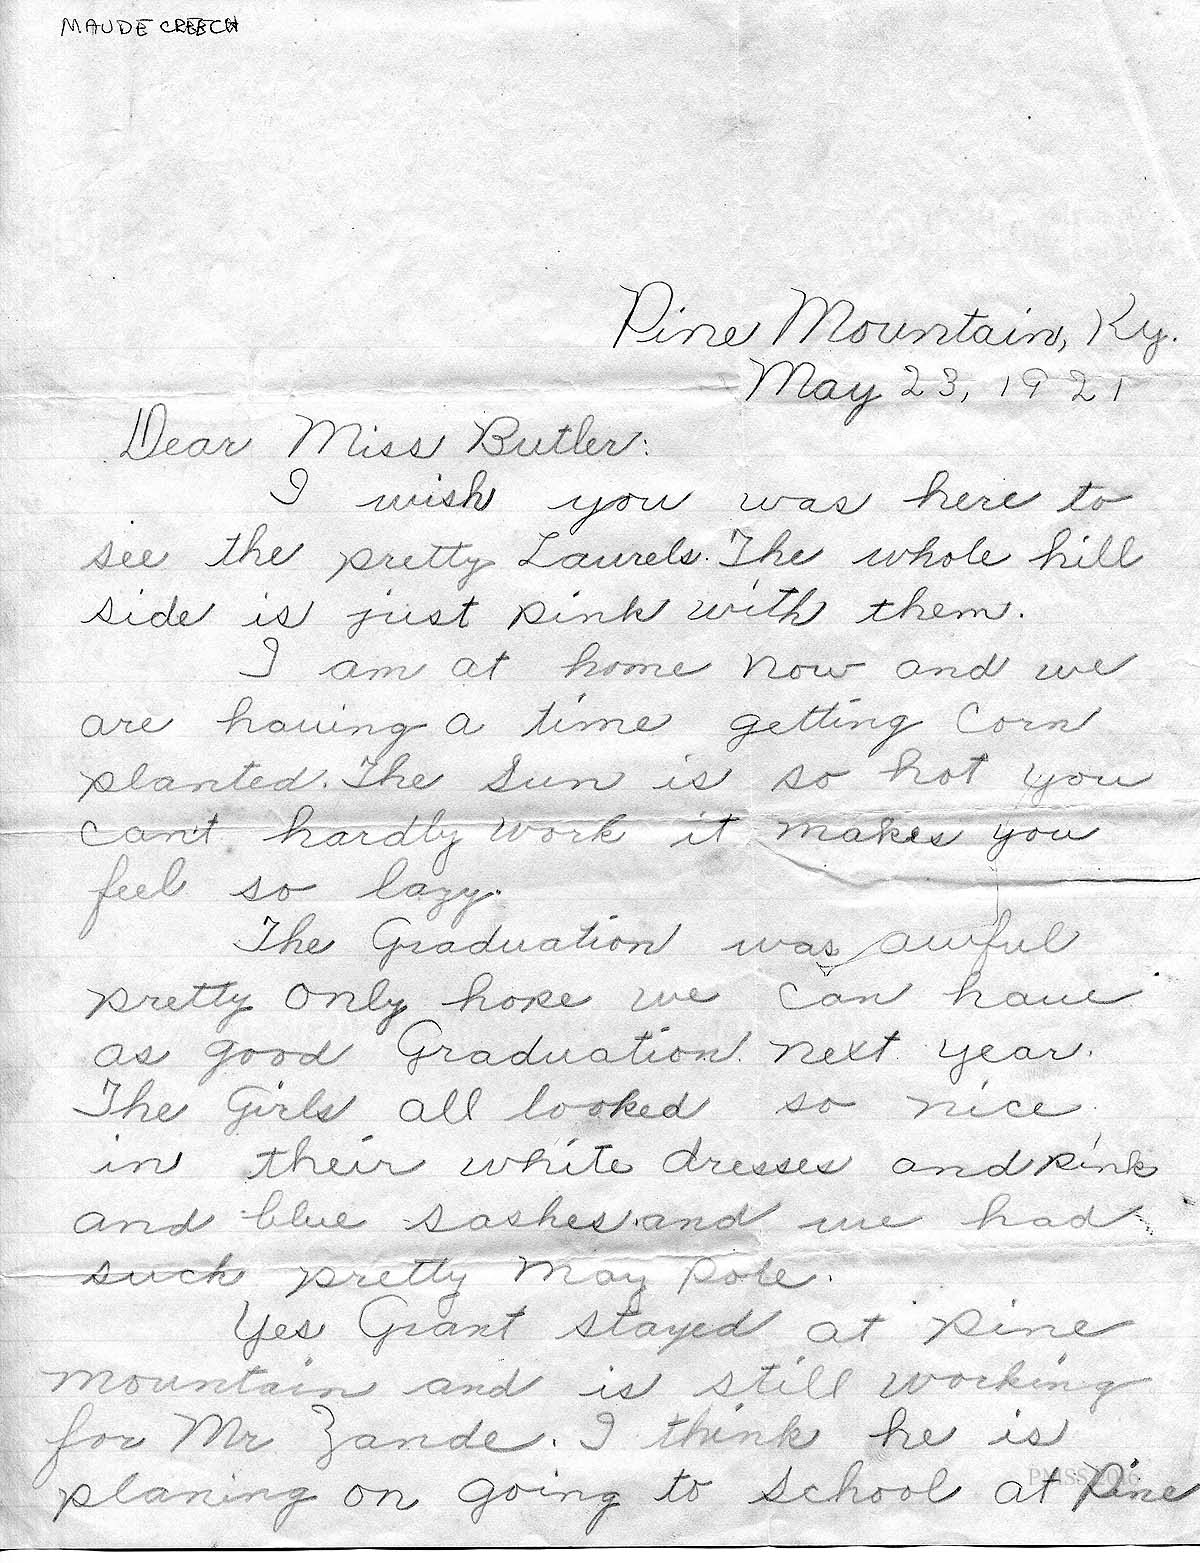 MAUDE CREECH
Pine Mountain, Ky.
May 23, 1921
Dear Miss Butler:
I wish you was here to
see the pretty Laurels. The whole hill
side is just pink with them.
I am at home now and we
are having a time getting corn
planted. The Sun is so hot you
can't hardly work it makes you
feel so lazy.
The Graduation was awful
pretty only hope we can have
as good Graduation next year.
The Girls all looked so nice
in their white dresses and pink
and blue sashes and we had
such pretty May Pole.
Yes Grant stayed at Pine
Mountain and is still working
for Mr Zande. I think he is
planing on going to school at Pine
PMSS 2016